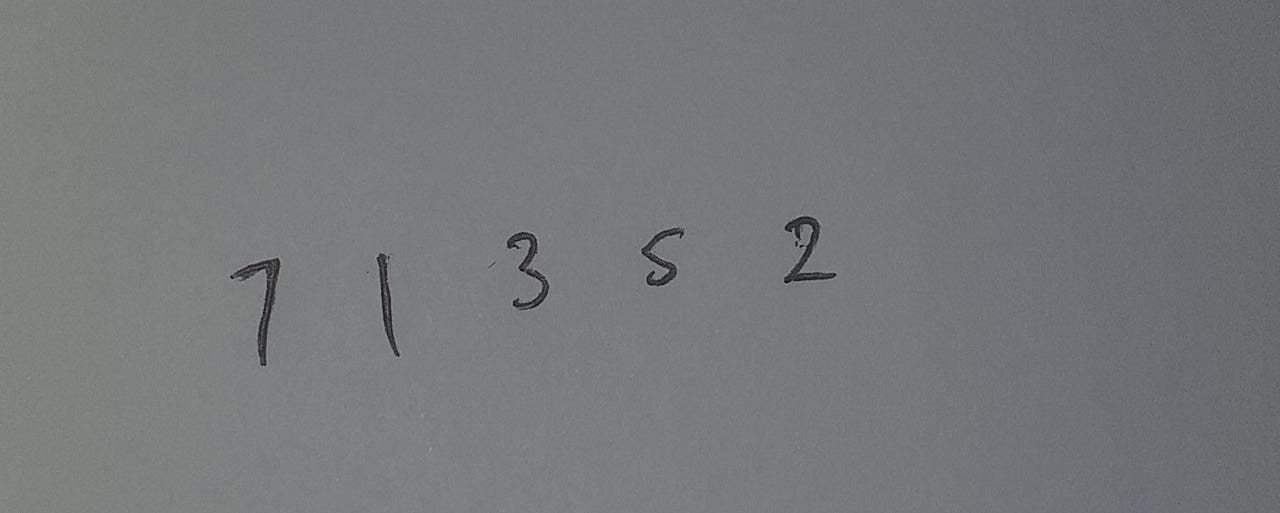 7 1 3 5 2